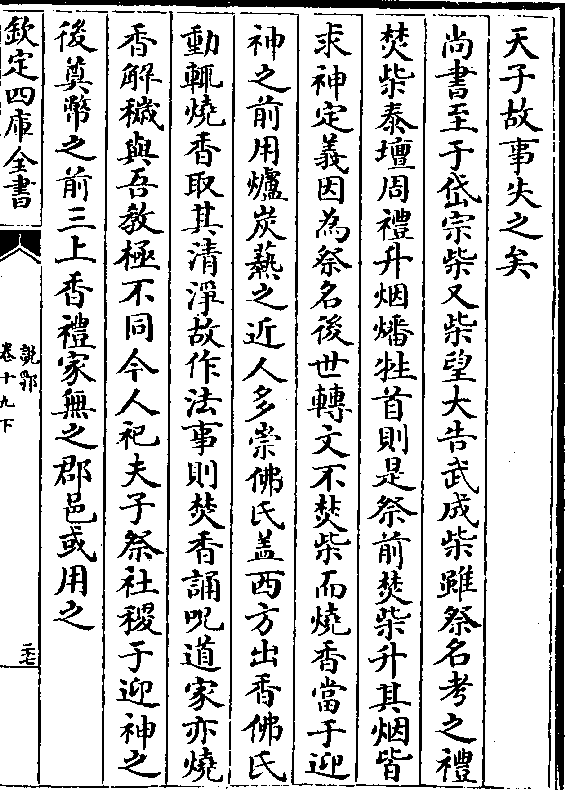 天子故事失之矣
尚書至于岱宗柴又柴望大告武成柴雖祭名考之禮
焚柴泰壇周禮升烟燔牲首則是祭前焚柴升其烟皆
求神定義因為祭名後世轉文不焚柴而燒香當于迎
神之前用爐炭爇之近人多崇佛氏蓋西方出香佛氏
動輒燒香取其清淨故作法事則焚香誦呪道家亦燒
香解穢與吾教極不同今人祀夫子祭社稷于迎神之
後奠幣之前三上香禮家無之郡邑或用之
欽定四庫全書
說郛
卷十九下